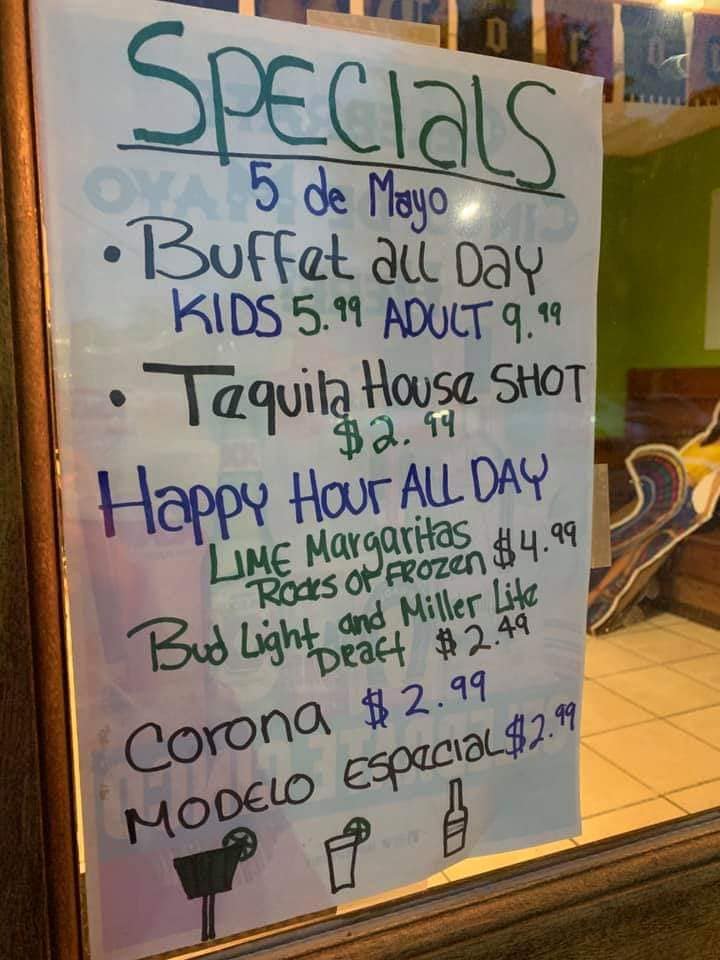 SPECIALS
5 de Mayo
• Buffet all Day
KIDS 5.99 ADULT 9.99
• Tequila House SHOT
$2.99
Happy Hour ALL DAY
LIME Margaritas
Rocks or FROZEN $4.99
Bud Light and Miller Lite
Draft $2.49
Corona $2.99
MODELO Especial $2.99